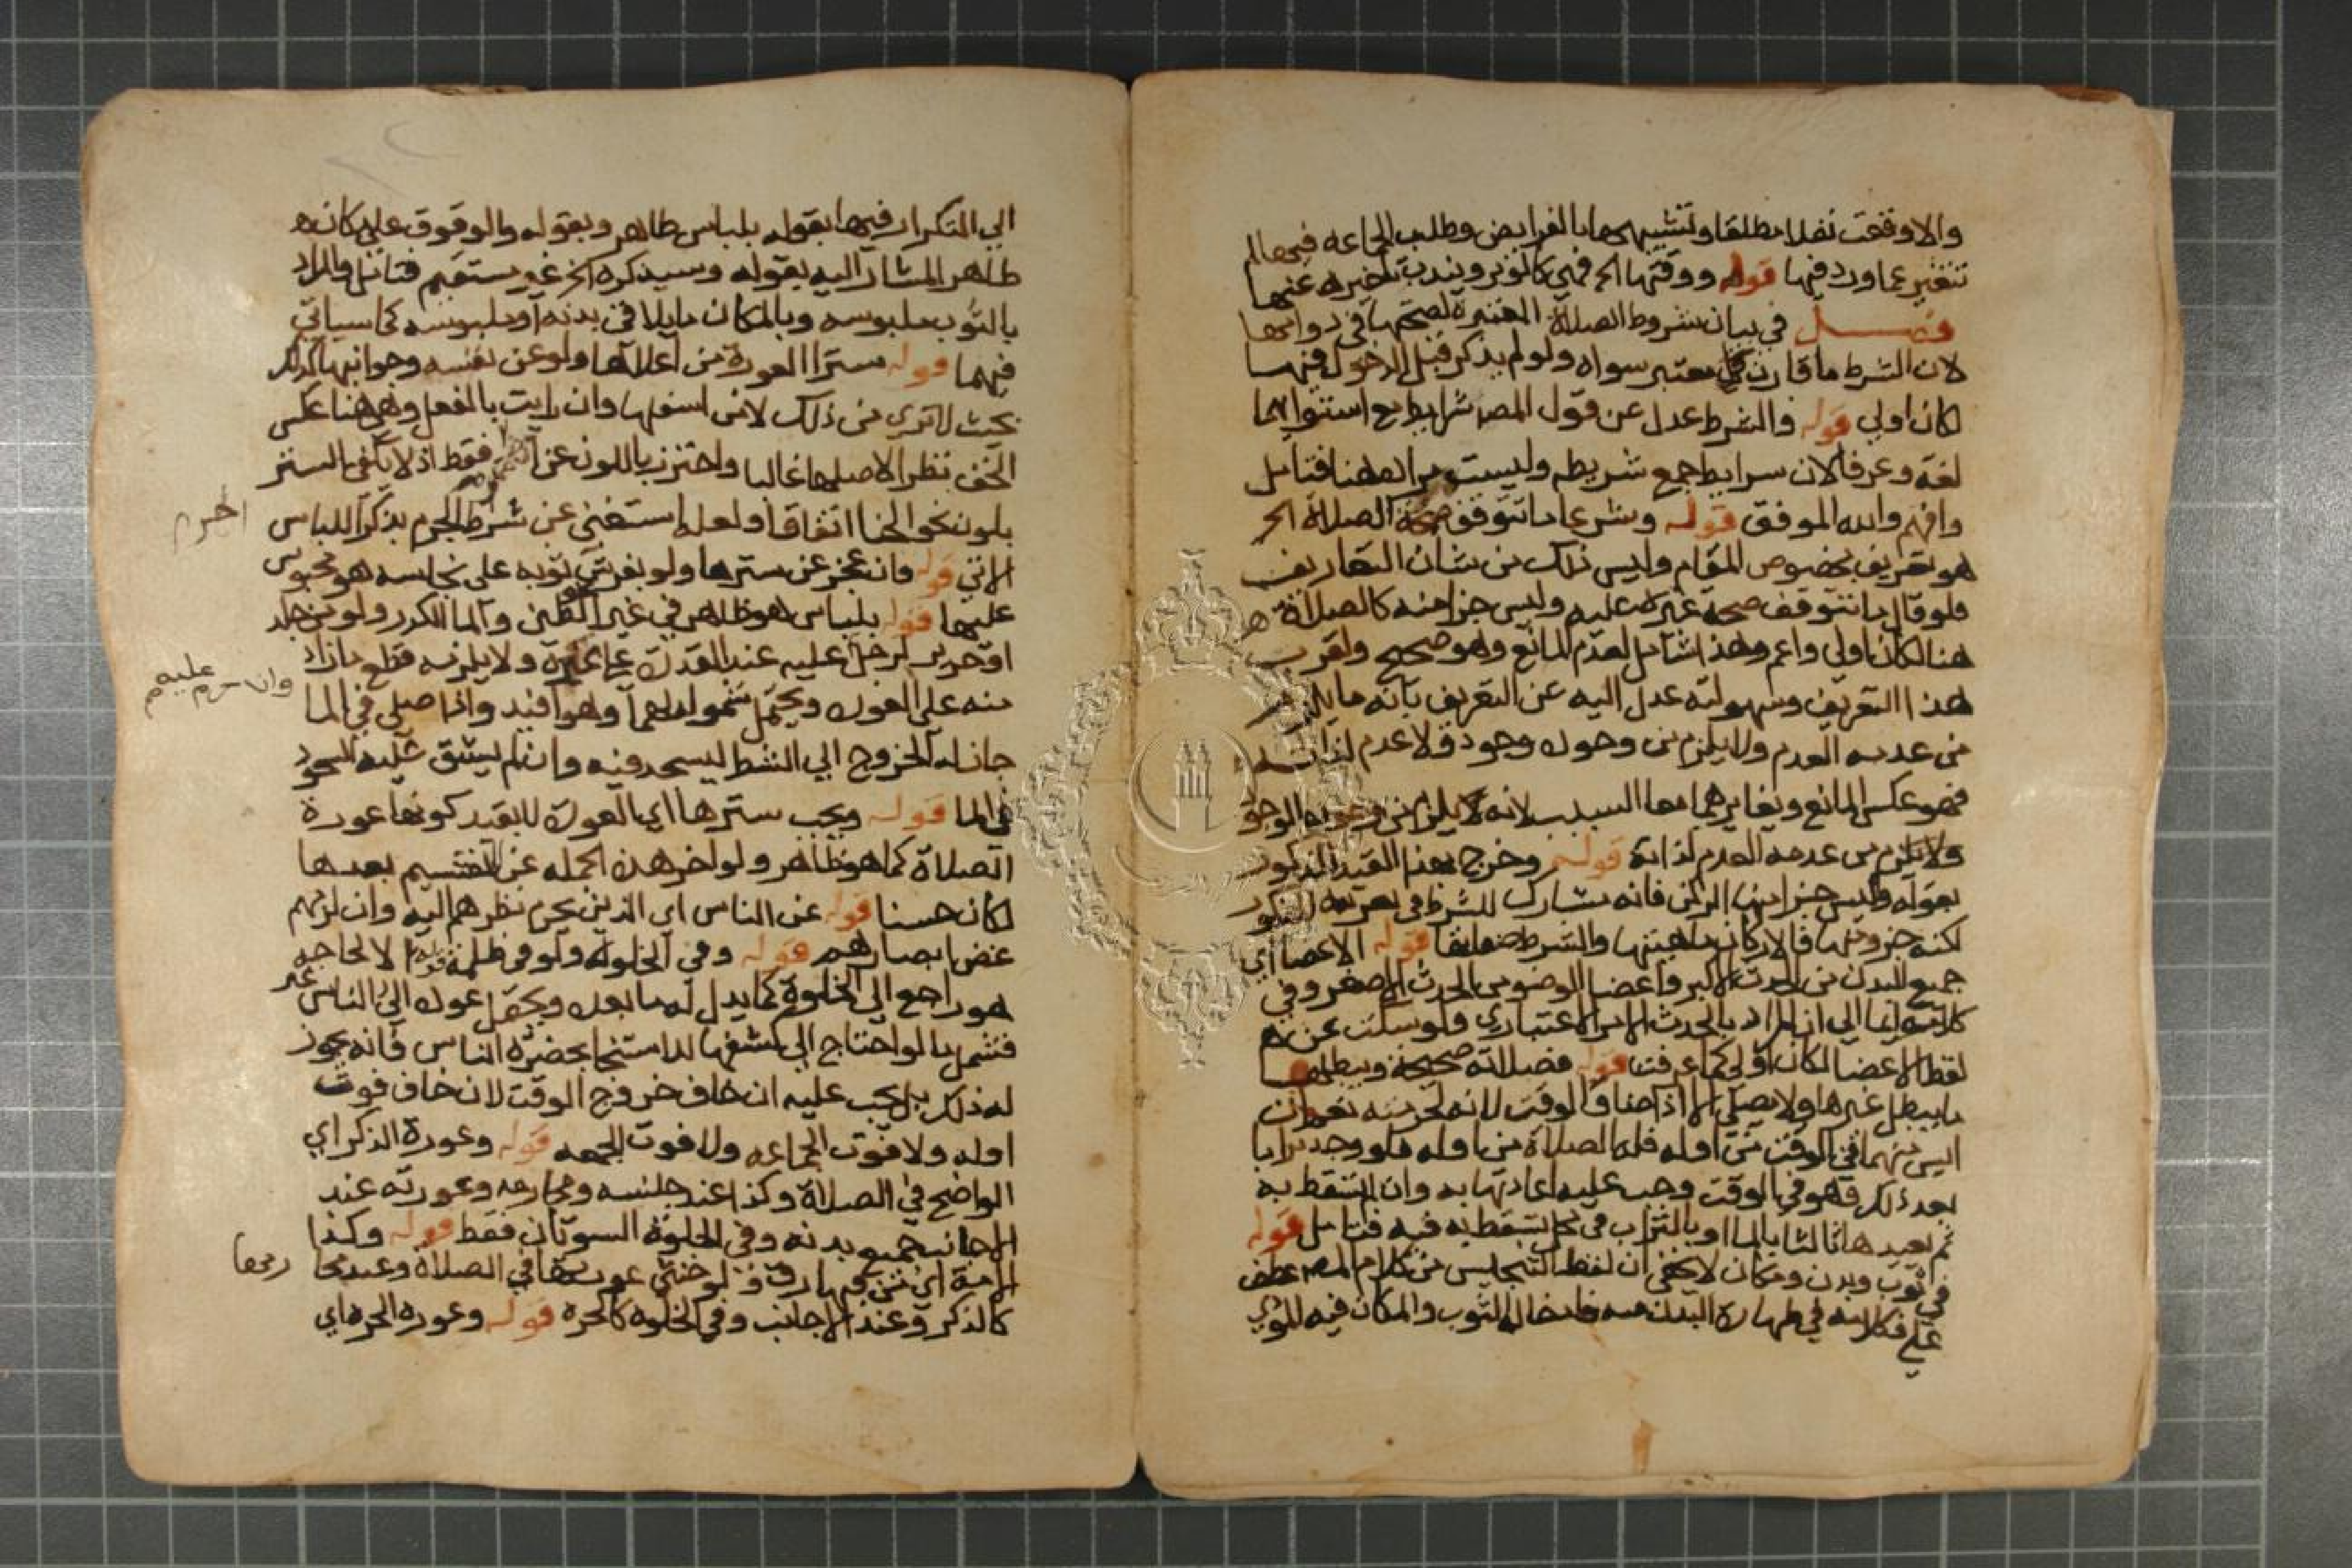 والا وقعت نفلا مطلقا وتشبيهها بالفرايض وطلب الجماعه فيها لم
تتغير عما ورد فيها قوله ووقتها الخ فهي كالوتر ويندب تاخيره عنها
فصل في بيان شروط الصلاة المعتبرة لصحتها في دوامها
لان الشرط ما قارن كل معتبر سواه ولو لم يذكر قبل الدخول فيها
لكان اولي قوله والشرط عدل عن قول المص شرايط مع استوايهما
لغة وعرفا لان شرايط جمع شريطه وليست مرادة هنا فتامل
وافهم والله الموفق قوله وشرعا ما تتوقف صحة الصلاة الخ
هو تعريف بخصوص المقام وليس ذلك من شان التعاريف
فلو قال ما تتوقف صحة غيره عليه وليس جزا منه كالصلاة
هنا لكان اولي واعم وهذا شامل لعدم المانع وهو صحيح ولقرب
هذا التعريف وسهولته عدل اليه عن التعريف بانه ما يلزم
من عدمه العدم ولا يلزم من وجوده وجود ولا عدم لذاته
فهو عكس المانع ويغايرهما معا السبب لانه يلزم من وجوده الوجود
ولا يلزم من عدمه العدم لذاته قوله وخرج بهذا القيد المذكور
بقوله وليس جزا منها الركن فانه يشارك للشرط في تعريفه المذكور
لكنه جزو منها فالاركان ماهيتها والشرط صفاتها قوله الاعضا اي
جميع البدن من الحدث الاكبر واعضا الوضو من الحدث الاصغر وفي
كلامه ايما الي ان المراد بالحدث الامر الاعتباري فلو سكت عن
لفظ الاعضا لكان اولي كما عرفت قوله فصلاته صحيحة ويبطلها
ما يبطل غيرها ولا يصلي الا اذا ضاق الوقت لانه لحرمته نعم ان
ايس منهما في الوقت من اوله فله الصلاة من اوله فلو وجد ترابا
بعد ذلك فهو في الوقت وجب عليه اعادتها به وان لم تسقط به
ثم يعيدها ثالثا بالما او بالتراب في محل تسقط به فيه فتامل قوله
في ثوب وبدن ومكان لا يخفي ان لفظ التنجيس من كلام المص عطف
علي فكلامه في طهارة البدن منه فادخال الثوب والمكان فيه
الي التكرار فيها بقوله بلباس طاهر وبقوله والوقوف علي مكان
طاهر المشار اليه بقوله وسيذكره الخ غير مستقيم فتامل والمراد
بالثوب ملبوسه وبالمكان ما يلاقي بدنه او ملبوسه كما سياتي
فيهما قوله ستر العورة من اعلاها ولو عن نفسه وجوانبها كذلك
بحيث لا تري من ذلك لا من اسفلها وان رايت بالفعل وهي هنا عكس
الخف نظرا لاصلها غالبا واحترز باللون عن الحجم فقط اذ لا يكفي الستر
بلون نحو الحنا اتفاقا ولعله استغني عن شرط الجرم بذكر اللباس
الاتي قوله وان عجز عن سترها ولو بفرش ثوبه علي نجاسه هو محبوس
عليها قوله بلباس هو ظاهر في غير الطين والما الكدر ولو من جلد
او حرير لرجل عليه عند القدرة علي غيره ولا يلزمه قطع ما زاد
منه علي العورة ويحتمل شموله لهما وهو افيد واذا صلي في الما
جاز له الخروج الي الشط ليسجد فيه وان لم يشق عليه السجود
في الما قوله ويجب سترها اي العورة لا بقيد كونها عورة
الصلاة كما هو ظاهر ولو اخر هذه الجمله عن التقسيم بعدها
لكان حسنا قوله عن الناس اي الذين يحرم نظرهم اليه وان لزمهم
غض ابصارهم قوله وفي الخلوة ولو في ظلمة قوله الا لحاجه
هو راجع الي الخلوة كما يدل له ما بعده ويحتمل عوده الي الناس غير
فشمل ما لو احتاج الي كشفها لاستنجا بحضرة الناس فانه يجوز
له ذلك بل يجب عليه ان خاف خروج الوقت لا ان خاف فوت
اوله ولا فوت الجماعه ولا فوت الجمعه قوله وعورة الذكر اي
الواضح في الصلاة وكذا عند جنسه ومحارمه وعورته عند
الاجانب جميع بدنه وفي الخلوة السوتان فقط قوله وكذا
الامة اي من فيها رق ولو خنثي عورتها في الصلاة وعند محا
كالذكر وعند الاجانب وفي الخلوه كالحره قوله وعورة الحره اي
الجرم
وان حرم عليه
رمها